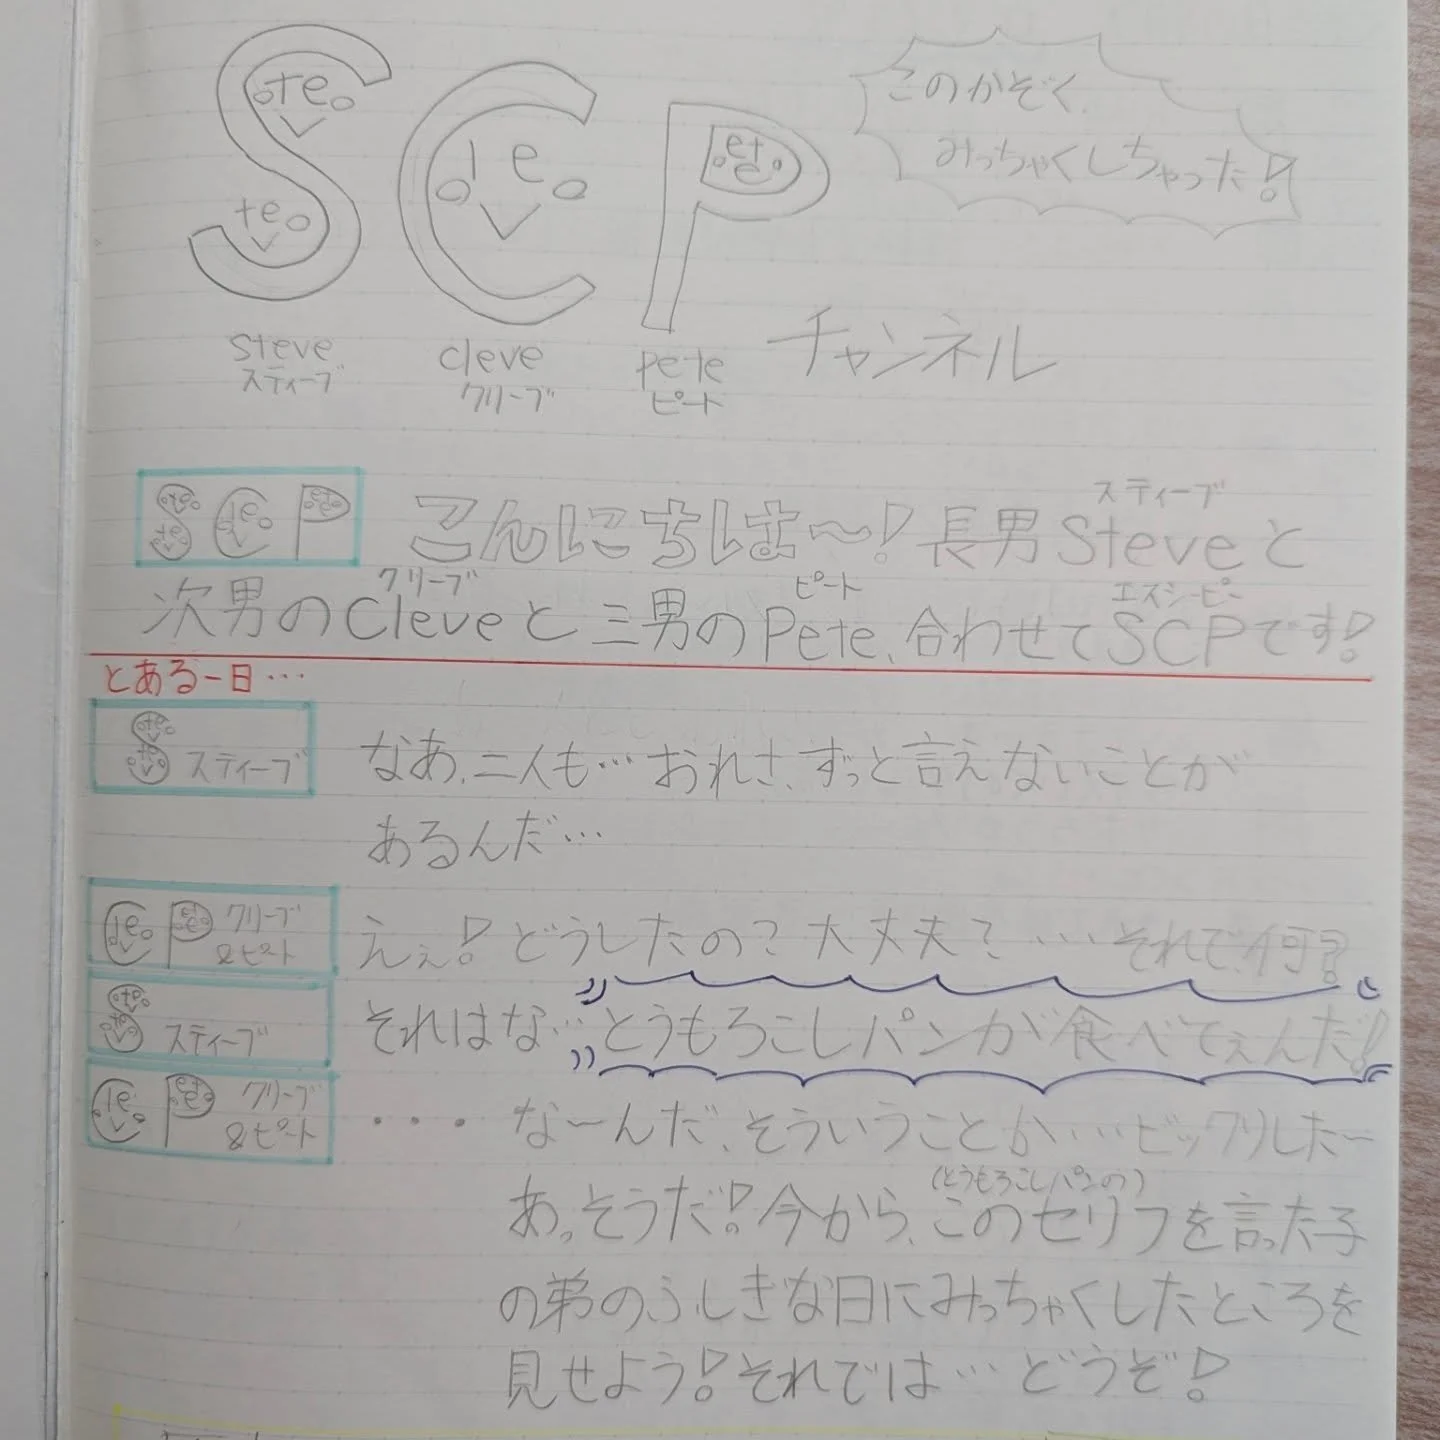 このかぞく、
みっちゃくしちゃった!
steve
スティーブ
cleve
クリーブ
pete
ピート
チャンネル
こんにちは〜!長男Steveと
スティーブ
次男のCleveと三男のPete、合わせてSCPです!
クリーブ
ピート
エスシーピー
とある一日…
スティーブ
なあ、二人も…おれさ、ずっと言えないことが
あるんだ…
クリーブ
&ピート
えぇ!どうしたの?大丈夫?…それで、何?
スティーブ
それはな…とうもろこしパンが食べてぇんだ!
クリーブ
&ピート
・・・なーんだ、そういうことか…ビックリした〜
(とうもろこしパンの)
あ。そうだ!今から、このセリフを言った子
の弟のふしぎな日にみっちゃくしたところを
見せよう!それでは…どうぞ!